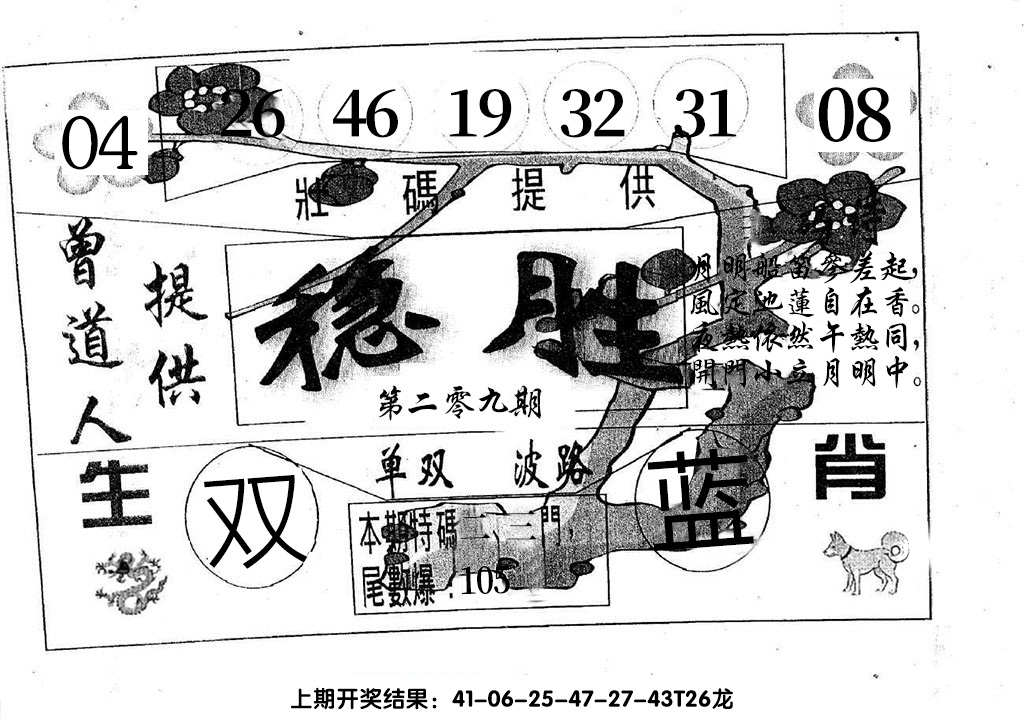 04 26 46 19 32 31 08
壯碼提供
曾道人
提供
稳胜
第二零九期
特
月明船笛參差起，
風定池蓮自在香。
夜熱依然午熱同，
開門小立月明中。
单双 波路
生肖
双
蓝
本期特碼二、三門，
尾數爆：105
上期开奖结果：41-06-25-47-27-43T26龙